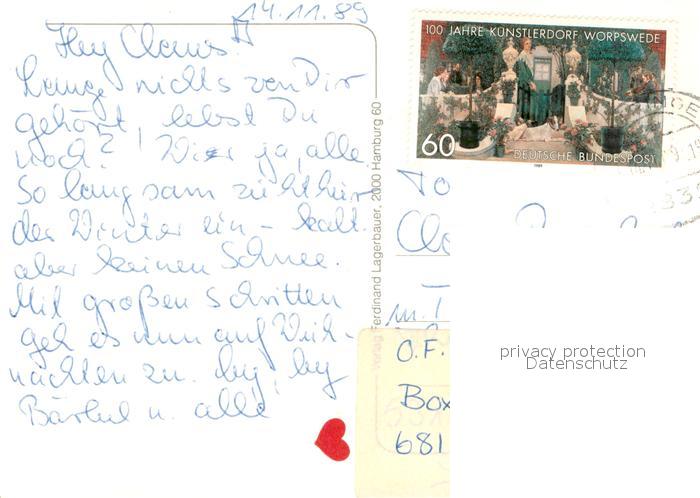 14.11.89
Hey Claus
Lange nichts von Dir
gehört, lebst Du
noch? Wir ja, alle.
So langsam zieht hier
der Winter ein - kalt
aber keinen Schnee.
Mit großen Schritten
geh es nun auf Weih-
nachten zu. by, by
Bärbel u. alle
Verlag Ferdinand Lagerbauer, 2000 Hamburg 60
100 JAHRE KÜNSTLERDORF WORPSWEDE
60
DEUTSCHE BUNDESPOST
1989
To
m. T
O.F.
Box
681
privacy protection
Datenschutz